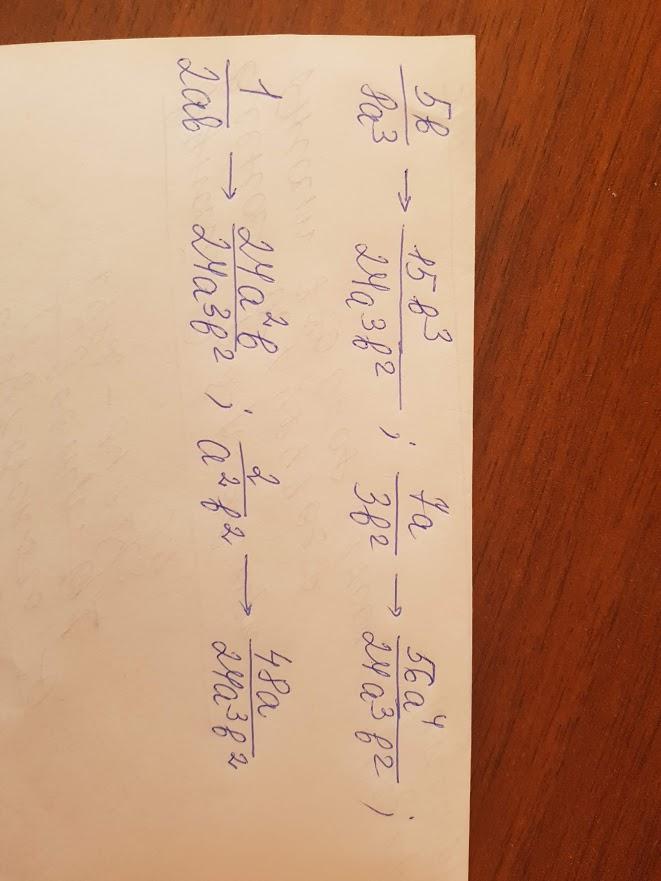 5b/8a³ → 15b³/24a³b² ; 7a/3b² → 56a⁴/24a³b² ;
1/2ab → 24a²b/24a³b² ; 2/a²b² → 48a/24a³b²